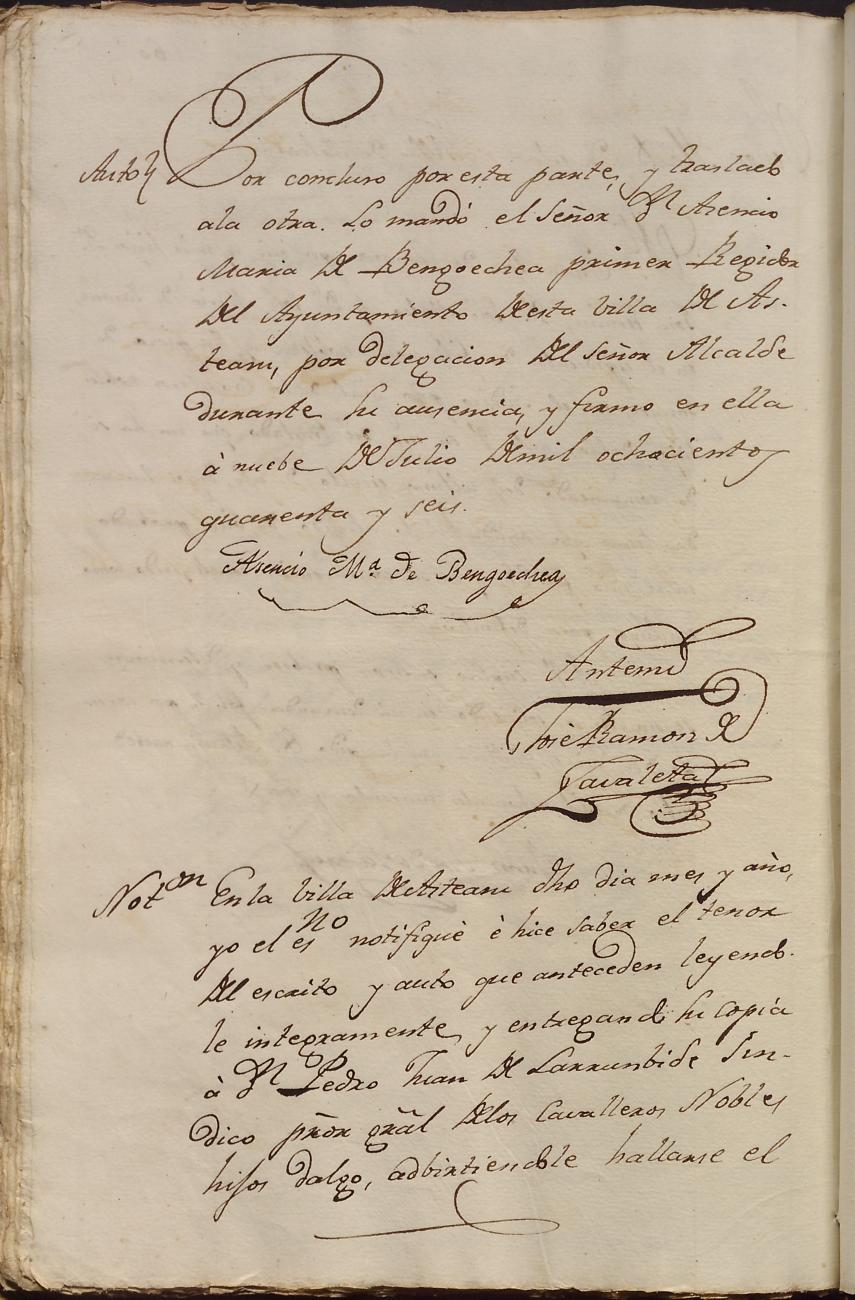 Auto Por concluso por esta parte, y traslado
ala otra. Lo mandó el Señor Dn Asencio
Maria de Bengoechea primer Regidor
del Ayuntamiento de esta Villa de As-
teasu, por delegacion del Señor Alcalde
durante su ausencia, y firmo en ella
à nuebe de Julio de mil ochocientos
quarenta y seis.
Asencio Ma de Bengoechea
Antemi
José Ramon de
Zavaleta
Noton En la Villa de Asteasu dho dia mes y año,
yo el esno notifiquè è hice saber el tenor
del escrito y auto que anteceden leyendo-
le integramente, y entregando su copia
à Dn Pedro Juan de Larrunbide Sin-
dico prõr grãl delos Cavalleros Nobles
hijos dalgo, adbirtiendole hallarse el